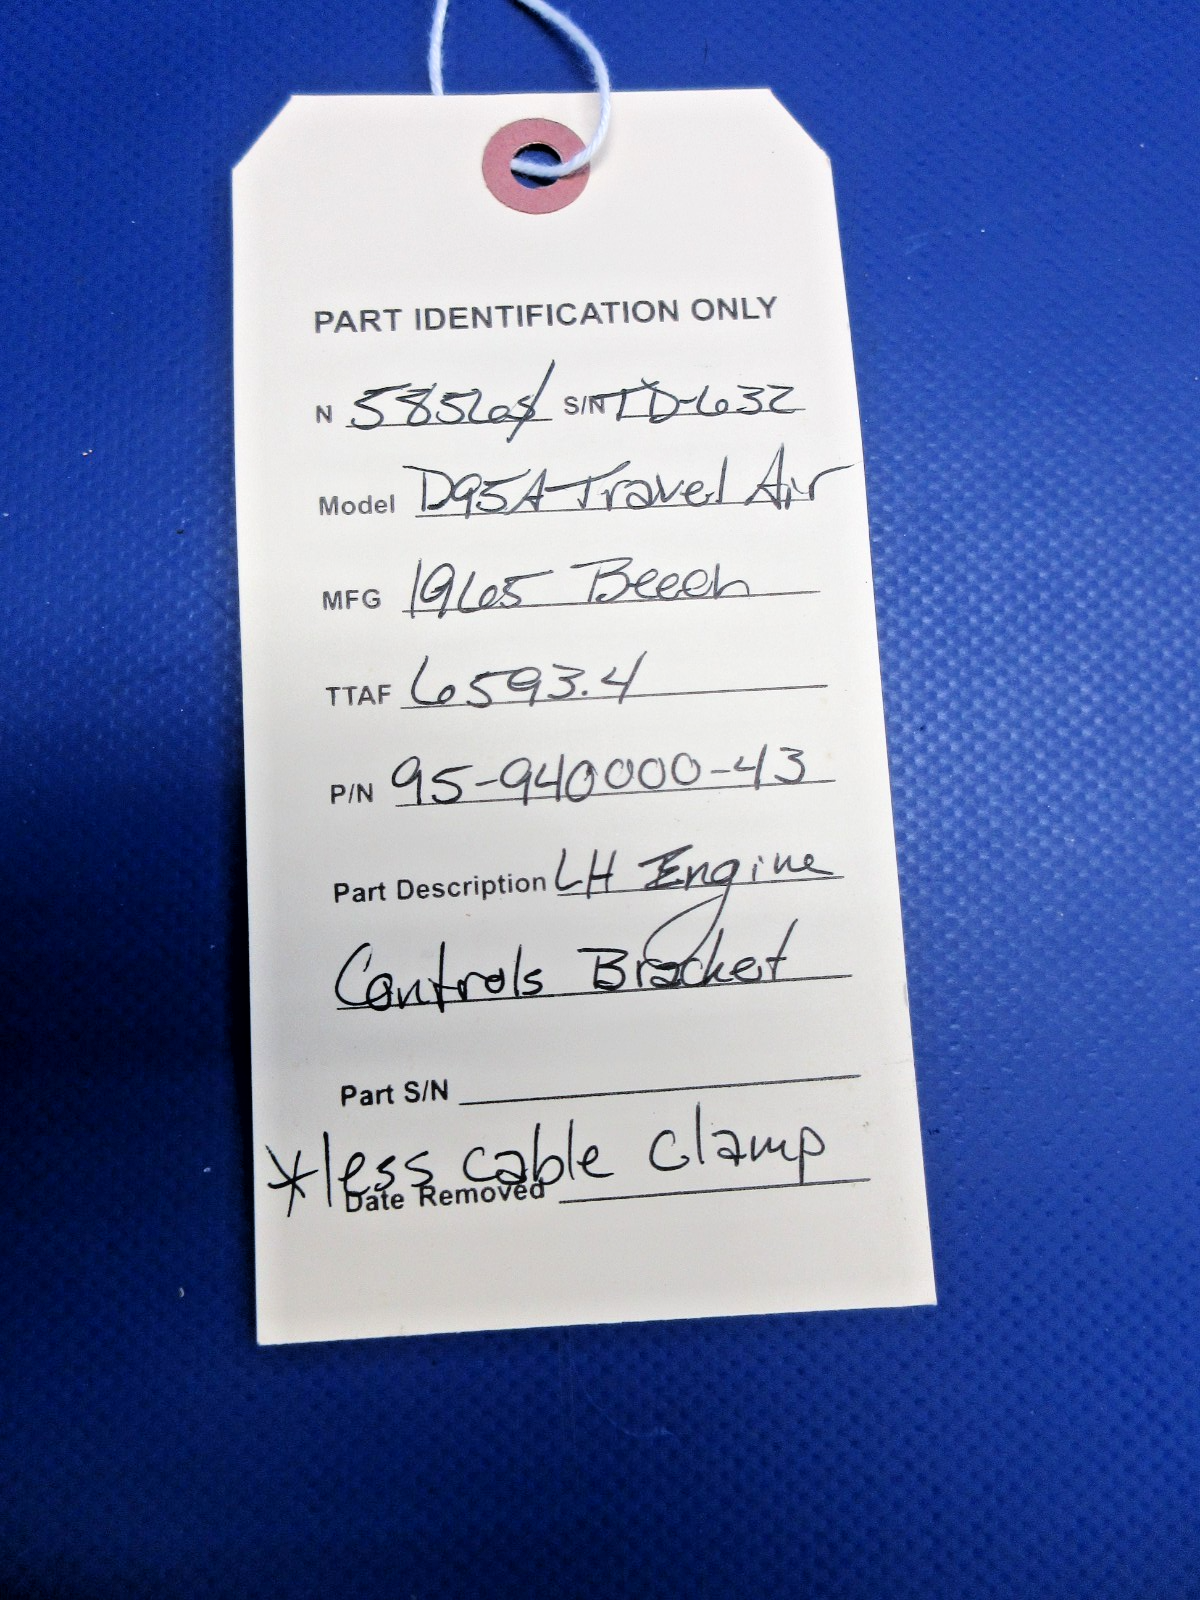 PART IDENTIFICATION ONLY
N 5856S/ S/N TD-632
Model D95A Travel Air
MFG 1965 Beech
TTAF 6593.4
P/N 95-940000-43
Part Description LH Engine
Controls Bracket
Part S/N
*less cable clamp
Date Removed